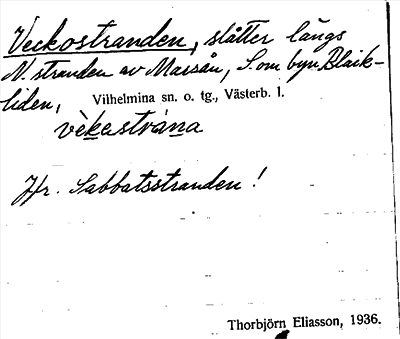 Veckostranden, slåtter längs
N. stranden av Marsån, S. om byn Blaik-
liden, Vilhelmina sn. o. tg., Västerb. l.
vèkastrána
Jfr. Sabbatsstranden!
Thorbjörn Eliasson, 1936.